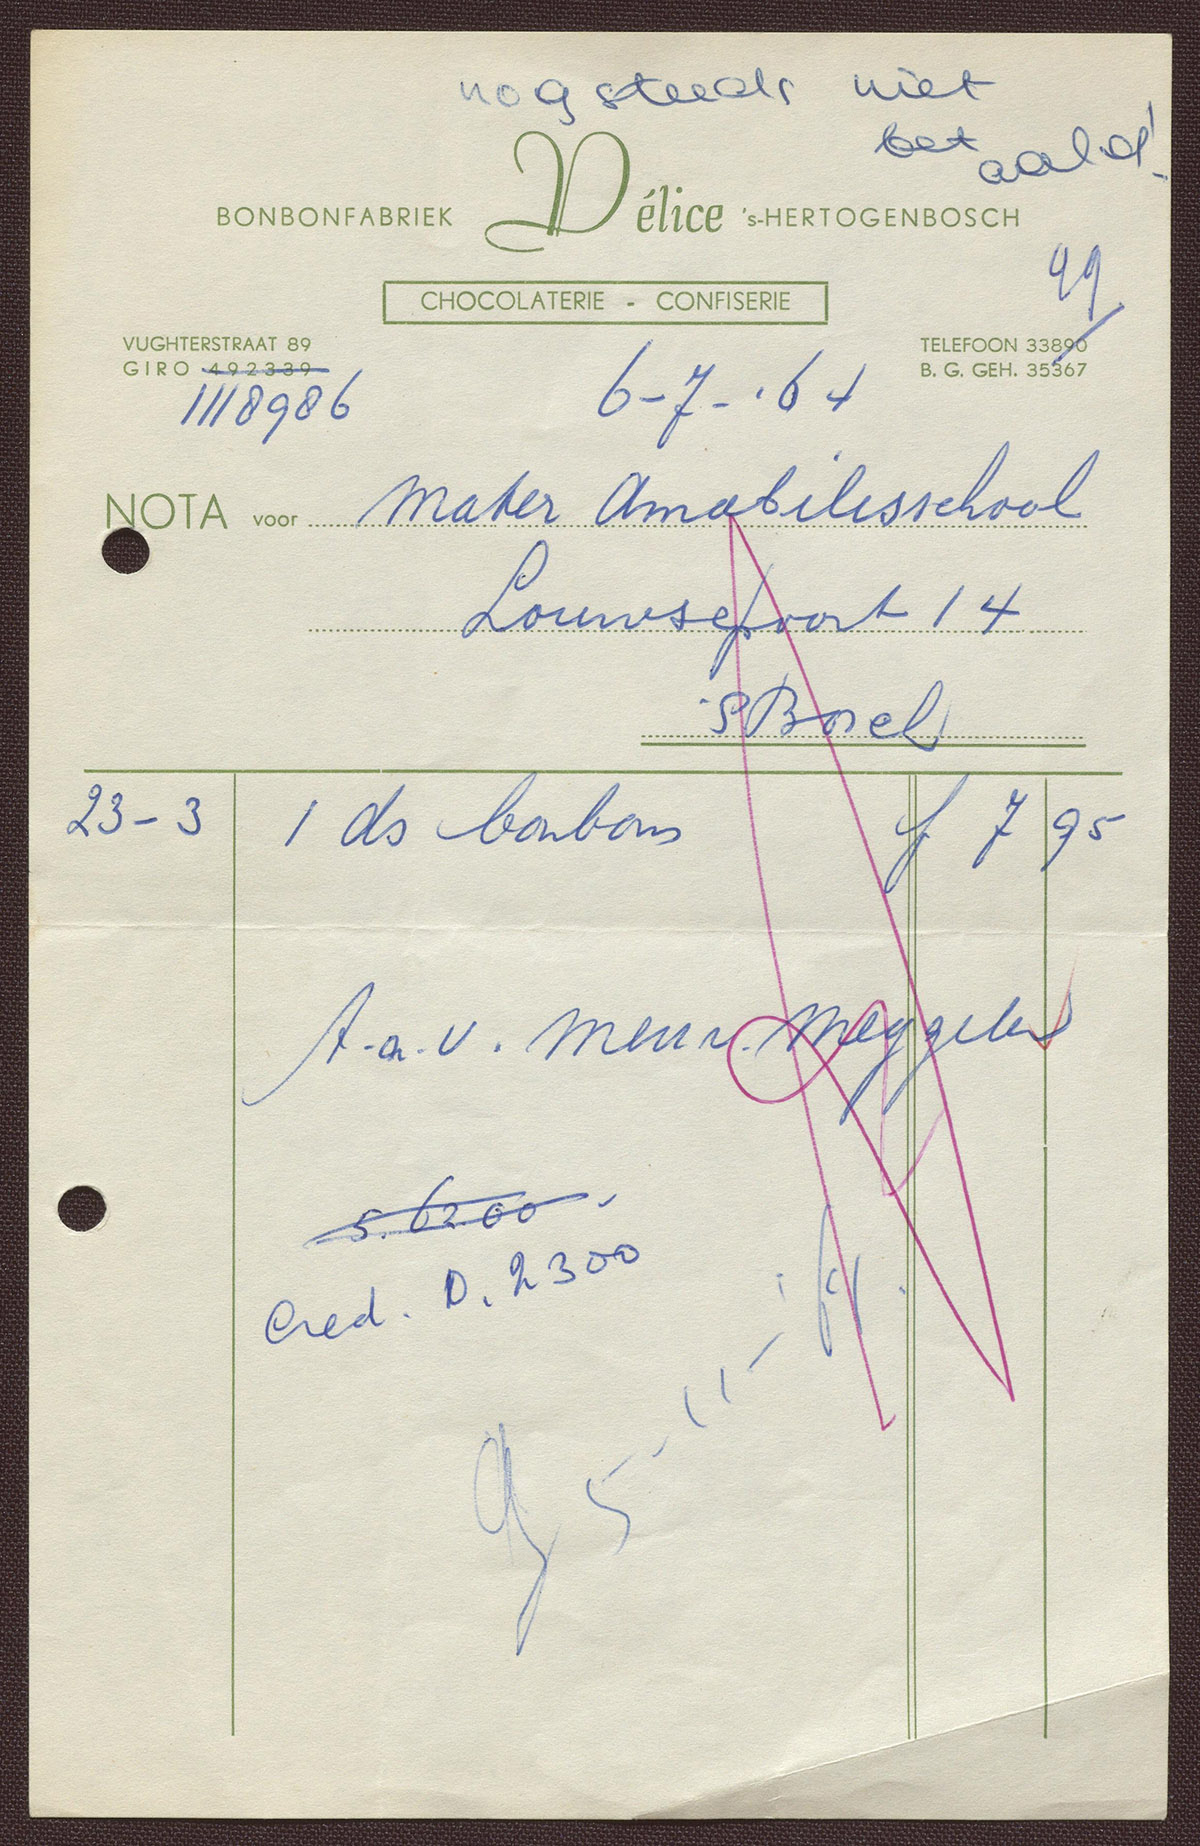 nog steeds niet
betaald!
BONBONFABRIEK Délice 's-HERTOGENBOSCH
CHOCOLATERIE - CONFISERIE
99
VUGHTERSTRAAT 89
TELEFOON 33890
GIRO 492339
B. G. GEH. 35367
1118986
6-7-'64
NOTA voor Mater Amabilisschool
Louwsepoort 14
'sBosch
23-3 1 ds bonbons f 7 95
t.a.v. Mevr. Meggelen
5.6200.
Cred. D. 2300
5-11-'64.